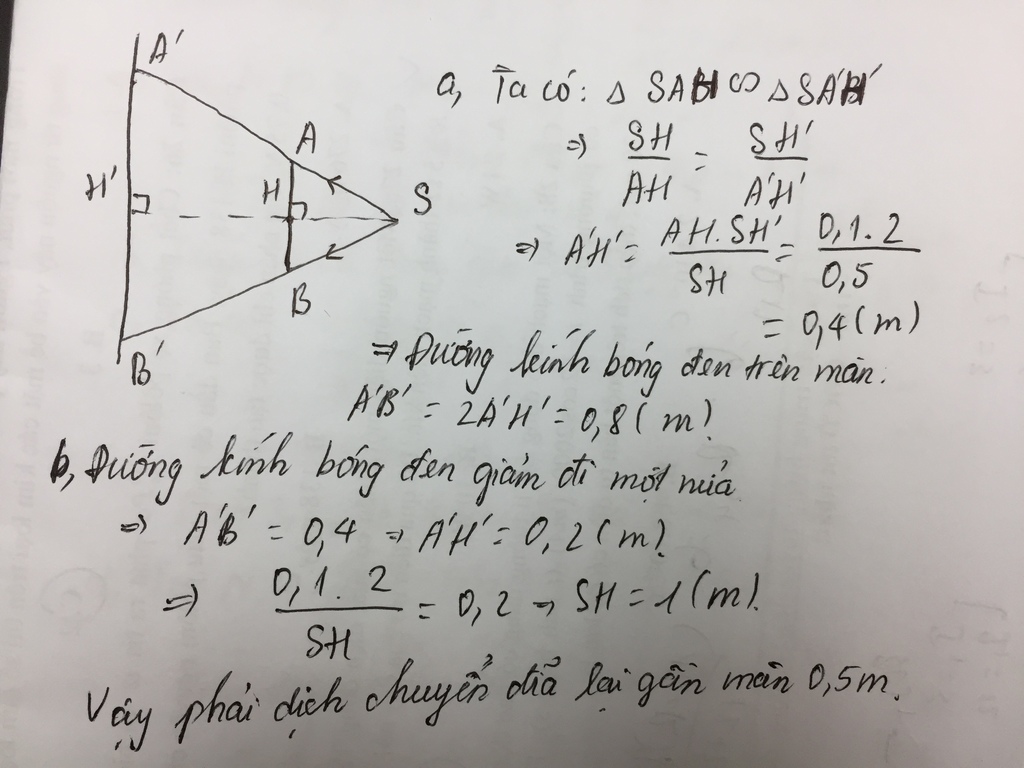 A'
A
H'
H
S
B
B'
a, Ta có: Δ SAH ∽ Δ SA'H'
=> SH/AH = SH'/A'H'
=> A'H' = AH.SH'/SH = 0,1.2/0,5
= 0,4 (m)
=> Đường kính bóng đen trên màn:
A'B' = 2A'H' = 0,8 (m).
b, Đường kính bóng đen giảm đi một nửa
=> A'B' = 0,4 → A'H' = 0,2 (m).
=> 0,1.2/SH = 0,2 → SH = 1 (m).
Vậy phải dịch chuyển đĩa lại gần màn 0,5m.